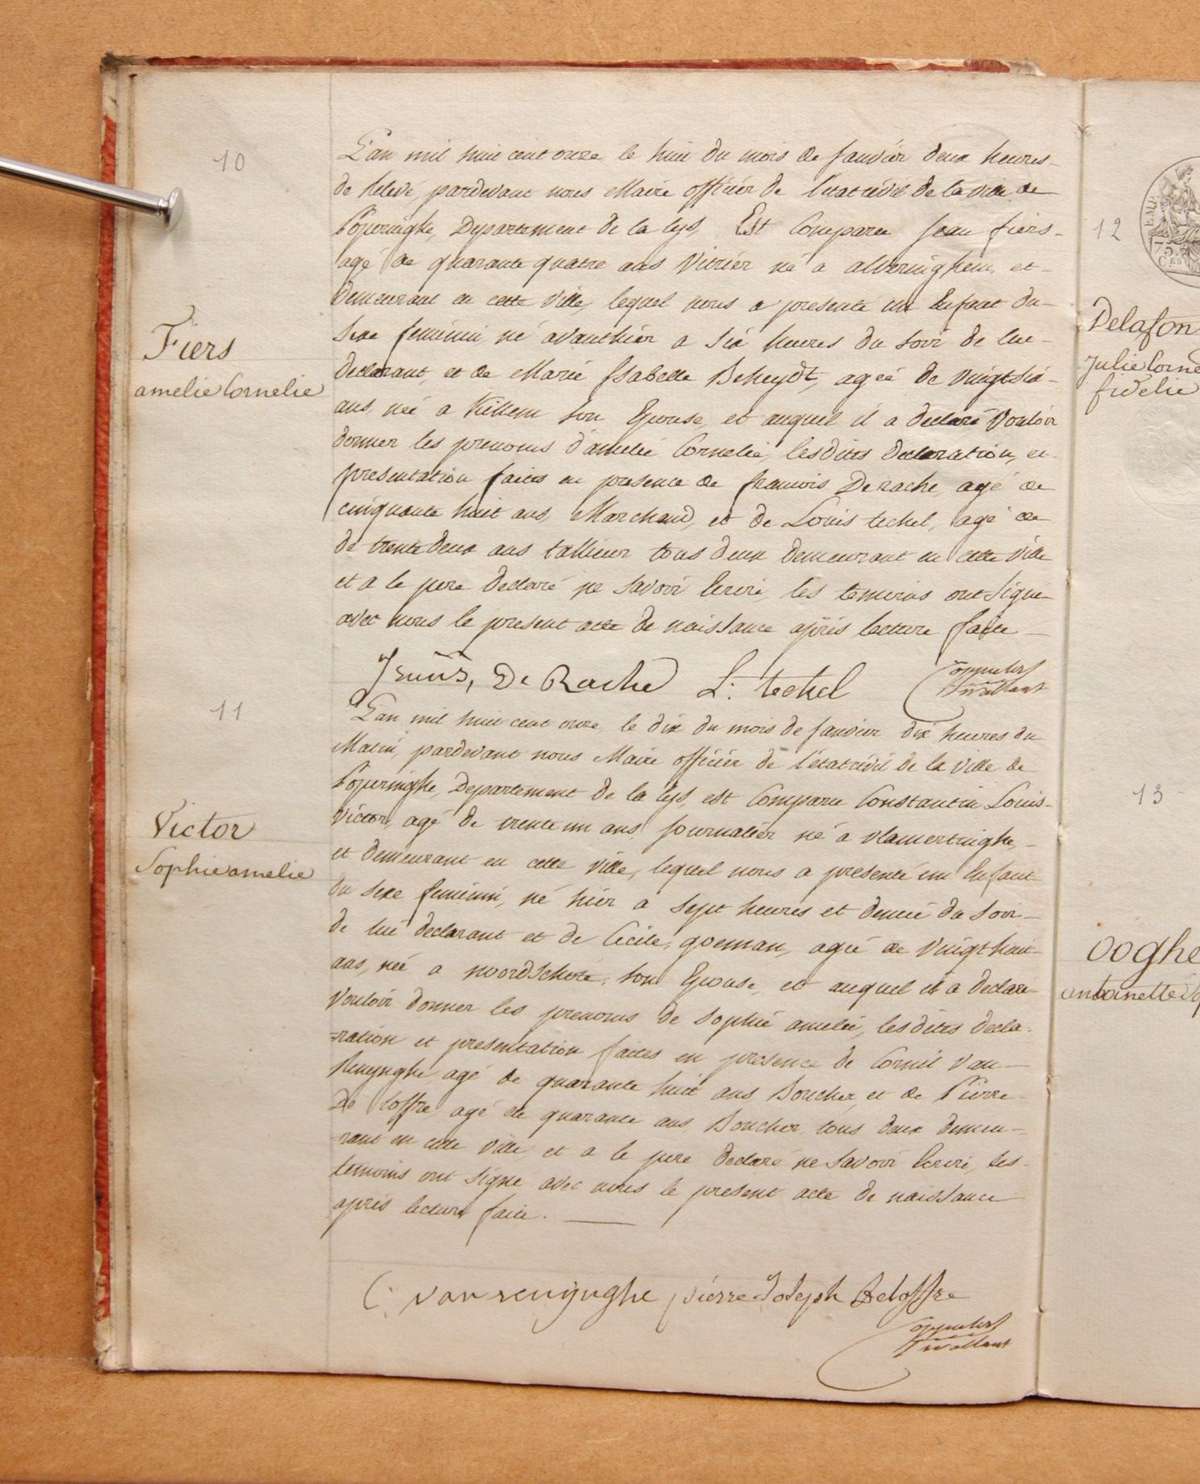 10
L'an mil huit cent onze le huit du mois de Janvier deux heures
de relevé, pardevant nous Maire officier de l'etat civil de la ville de
Poperinghe, Departement de la Lys, Est Comparu Jean fiers
agé de quarante quatre ans Vitrier né a alveringhem, et
demeurant en cette ville, lequel nous a presenté un Enfant du
Sexe feminin né avanthier a six heures du soir de lui
declarant, et de Marie Isabelle Beheydt, ageé de vingt six
ans, née a Killem son Epouse, et auquel il a declaré Vouloir
donner les prenoms d'amelie Cornelie, lesdites declaration, et
presentation faites en presence de francois De rache, agé de
cinquante huit ans, Marchand, et de Louis techel, agé de
de trente deux ans tallieur tous deux demeurant en cette ville
et a le pere declaré ne savoir Ecrire, les temoins ont signé
avec nous le present acte de naissance après lecture faite
Fiers
amelie Cornelie
De Rache L: techel
11
L'an mil huit cent onze, le dix du mois de Janvier dix heures du
Matin, pardevant nous Maire officier de l'etat civil de la ville de
Poperinghe, Departement de la Lys, est Comparu Constantin Louis
Victor, agé de trente un ans journalier né a vlamertinghe,
et demeurant en cette ville, lequel nous a presenté un Enfant
du sexe feminin, né hier a sept heures et demie du soir
de lui declarant et de Cecile, goeman, ageé de vingt huit
ans, née a noordschote, son Epouse, et auquel il a declaré
Vouloir donner les prenoms de sophie amelie, lesdites decla-
=ration et presentation faites en presence de Cornil Van
Renynghe agé de quarante huit ans Boucher, et de Pierre
De loffre agé de quarante ans, Boucher, tous deux demeu-
=rant en cette ville et a le pere declaré ne savoir Ecrire, les
temoins ont signé avec nous le present acte de naissance
après lecture faite.
Victor
Sophie amelie
C: van renÿnghe pierre Joseph Deloffre
12
Delafon
Julie Corne
fidelie
13
Ooghe
antoinette